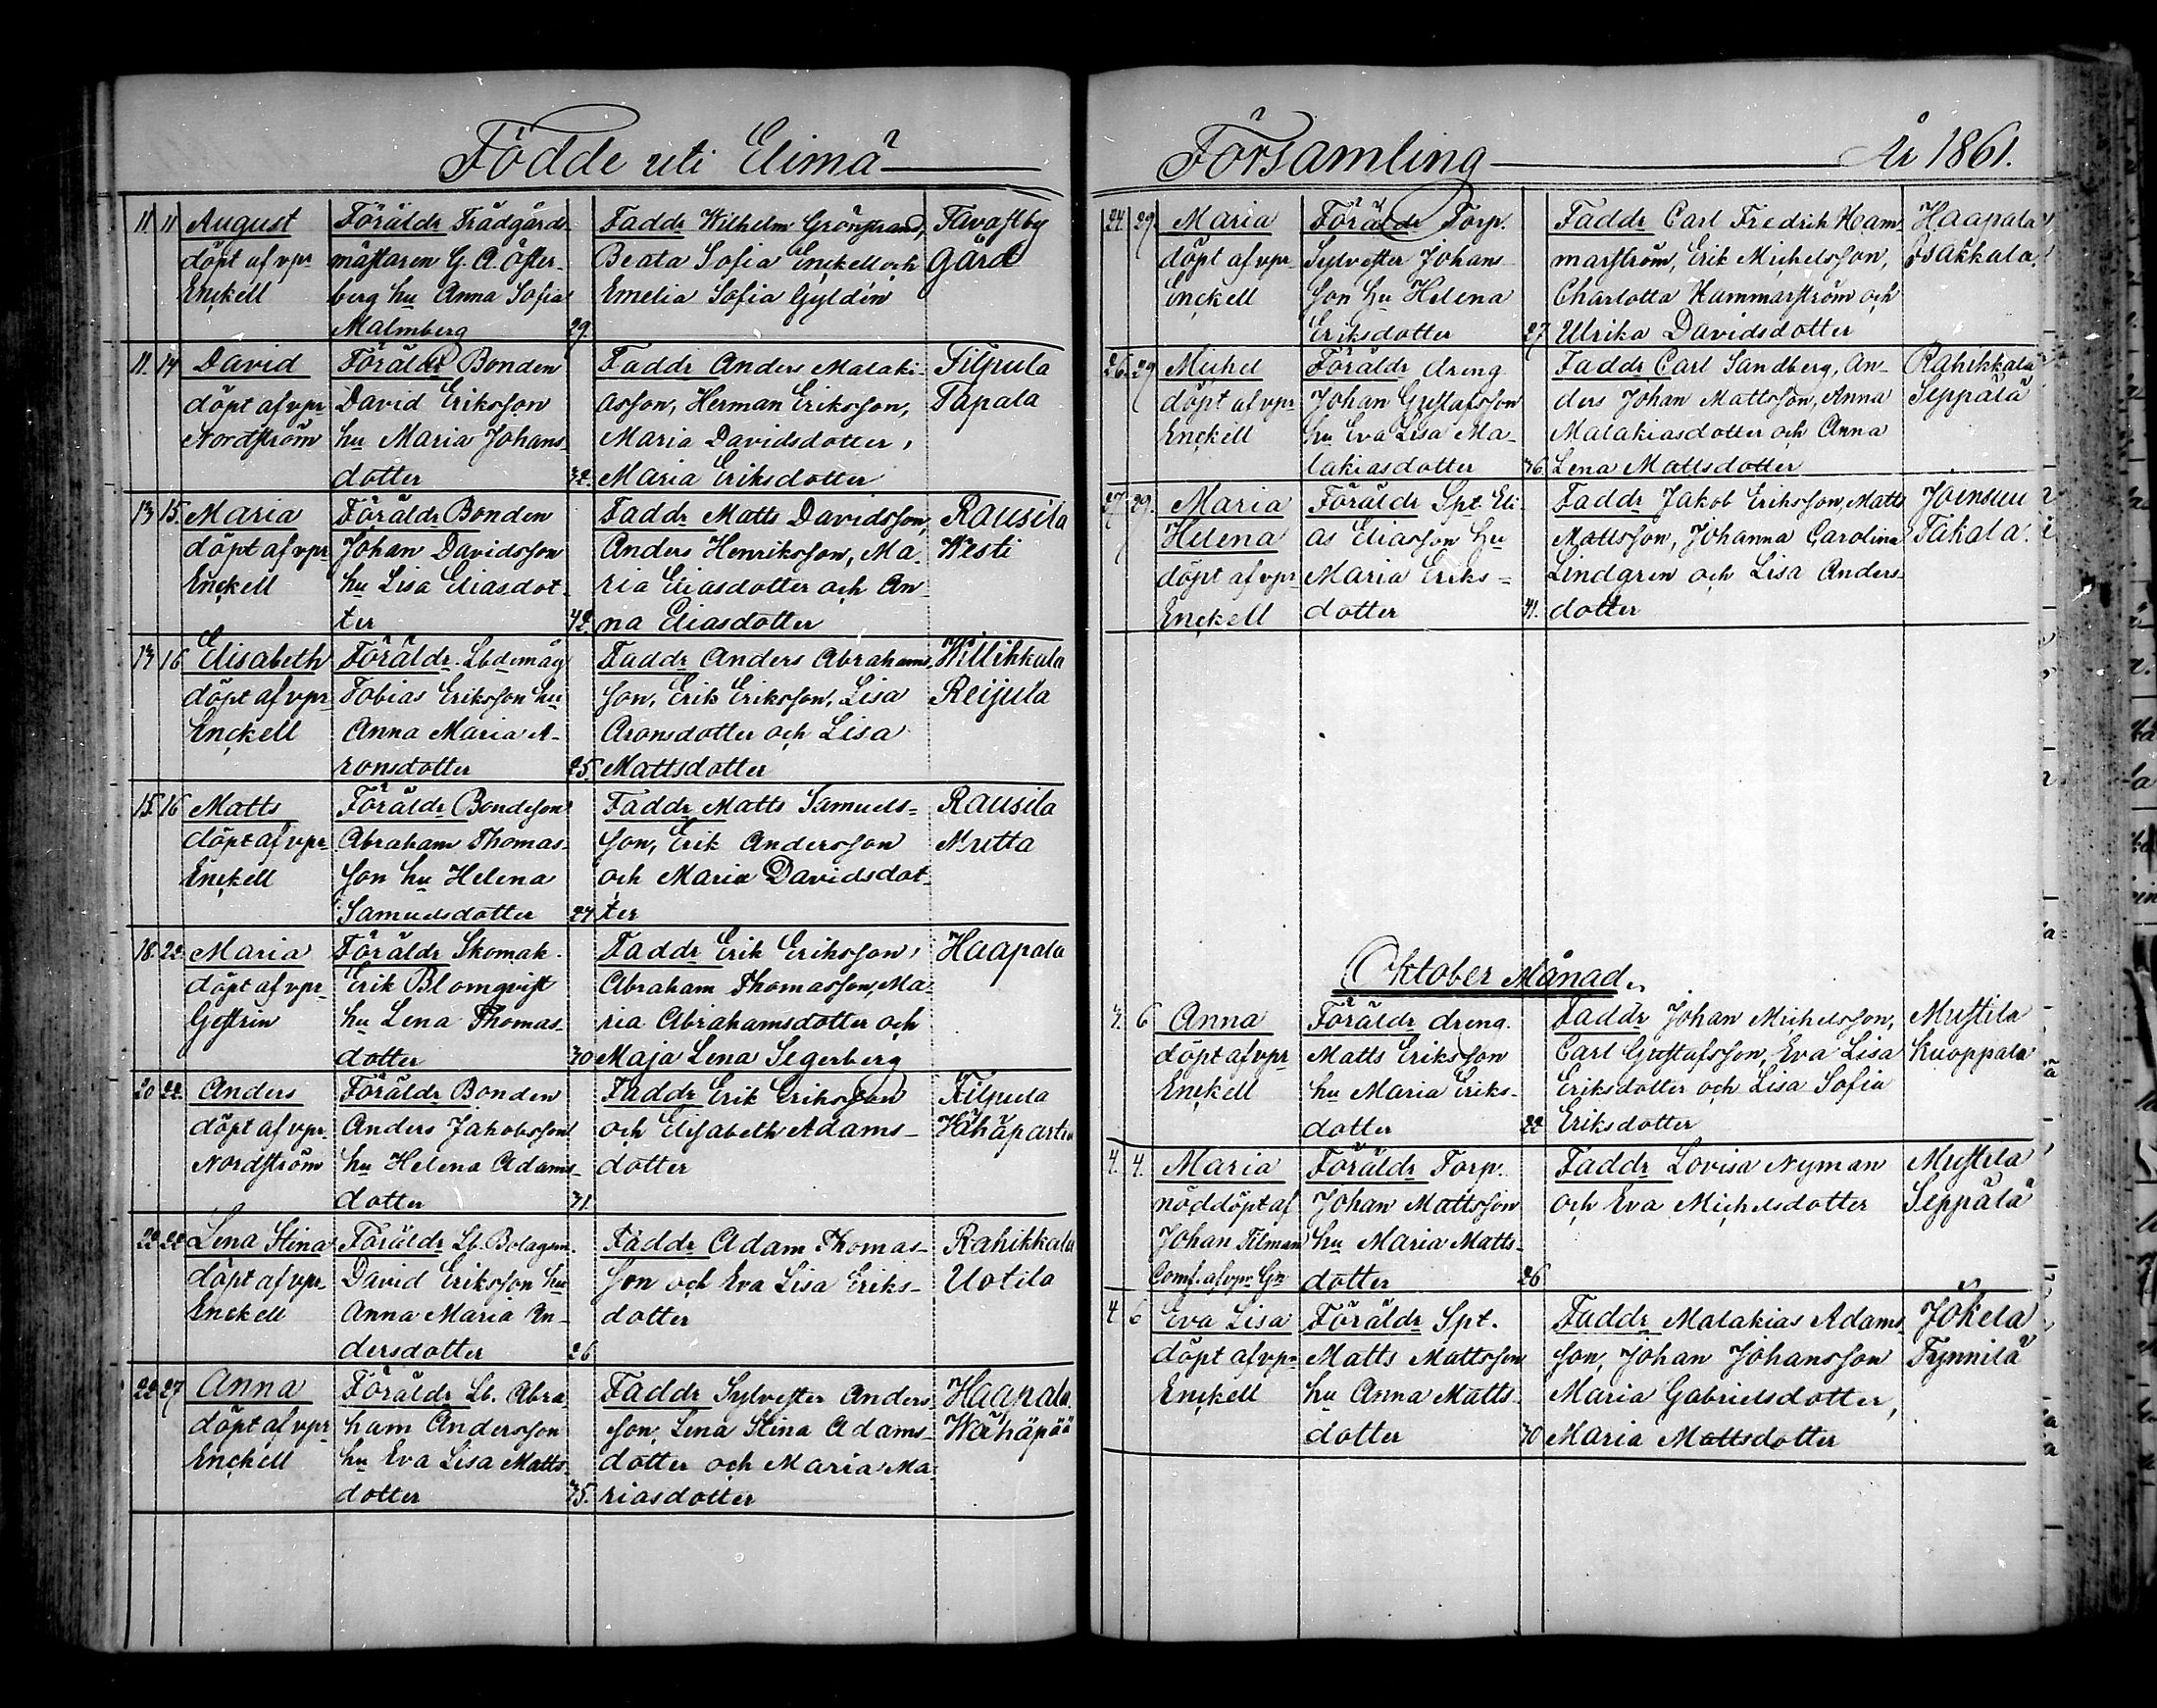 Födde uti Elimä
11 11 August Föräldr Trädgårds- Faddr Wilhelm Grönstrand, Tavastby
döpt af vpr mästaren G. A. Öster- Beata Sofia Enckell och Gård
Enckell berg hu Anna Sofia Emelia Sofia Gyldén
Malmberg 29.
11. 14 David Föräldr Bonden Faddr Anders Malaki- Filpula
döpt af vpr David Eriksson asson, Herman Eriksson, Tapala
Nordström hu Maria Johans- Maria Davidsdotter,
dotter 32. Maria Eriksdotter
13 15. Maria Föräldr Bonden Faddr Matts Davidsson, Rausila
döpt af vpr Johan Davidsson Anders Henriksson, Ma- Westi
Enckell hu Lisa Eliasdot- ria Eliasdotter och An-
ter 42. na Eliasdotter
13 16 Elisabeth Föräldr. Lbdemåg Faddr Anders Abrahams- Willikkala
döpt af vpr Tobias Eriksson hu son, Erik Eriksson, Lisa Reijula
Enckell Anna Maria A- Aronsdotter och Lisa
ronsdotter 25. Mattsdotter
15. 16 Matts Föräldr Bondeson Faddr Matts Samuels- Rausila
döpt af vpr Abraham Thomas- son, Erik Andersson Mutta
Enckell son hu Helena och Maria Davidsdot-
Samuelsdotter 24 ter
18. 22 Maria Föräldr Skomak. Faddr Erik Eriksson, Haapala
döpt af vpr Erik Blomqvist Abraham Thomasson, Ma-
Gestrin hu Lena Thomas- ria Abrahamsdotter och
dotter 30 Maja Lena Segerberg
20 22. Anders Föräldr Bonden Faddr Erik Eriksson Filpula
döpt af vpr Anders Jakobsson och Elisabeth Adams-
Nordström hu Helena Adams- dotter
dotter 31.
22 22 Lena Stina Föräldr Lb. Bolagsm. Faddr Adam Thomas- Rahikkala
döpt af vpr David Eriksson hu son och Eva Lisa Eriks- Uotila
Enckell Anna Maria An- dotter
dersdotter 26
22 27 Anna Föräldr Lb. Abra- Faddr Sylvester Anders- Haapala
döpt af vpr ham Andersson son, Lena Stina Adams- Wähäpää
Enckell hu Eva Lisa Matts- dotter och Maria Ma-
dotter 35. riasdotter
Församling År 1861.
24 29. Maria Föräldr Torp. Faddr Carl Fredrik Ham- Haapala
döpt af vpr Sylvester Johans- marström, Erik Michelsson, Isakkala
Enckell son hu Helena Charlotta Hammarström och
Eriksdotter 27 Ulrika Davidsdotter
26. 29 Michel Föräldr dreng Faddr Carl Sandberg, An- Rahikkala
döpt af vpr Johan Gustafsson ders Johan Mattsson, Anna Seppälä
Enckell hu Eva Lisa Ma- Malakiasdotter och Anna
lakiasdotter 36. Lena Mattsdotter
27. 29. Maria Föräldr Spt. Eli- Faddr Jakob Eriksson, Matts Joensuu
Helena as Eliasson hu Mattsson, Johanna Carolina Takala.
döpt af vpr Maria Eriks- Lindgren och Lisa Anders-
Enckell dotter 41. dotter
Oktober Månad.
3. 6 Anna Föräldr dreng. Faddr Johan Michelsson, Mustila
döpt af vpr Matts Eriksson Carl Gustafsson, Eva Lisa Kuoppala
Enckell hu Maria Eriks- Eriksdotter och Lisa Sofia
dotter 22 Eriksdotter
4. 4. Maria Föräldr Torp. Faddr Lovisa Nyman Mustila
nöddöpt af Johan Mattsson och Eva Michelsdotter Seppälä
Johan Tilman hu Maria Matts-
Comf. af vpr Gn dotter 26
4 6 Eva Lisa Föräldr Spt. Faddr Malakias Adams- Jokela
döpt af vpr Matts Mattsson son, Johan Johansson Tynnilä
Enckell hu Anna Matts- Maria Gabrielsdotter,
dotter 30 Maria Mattsdotter